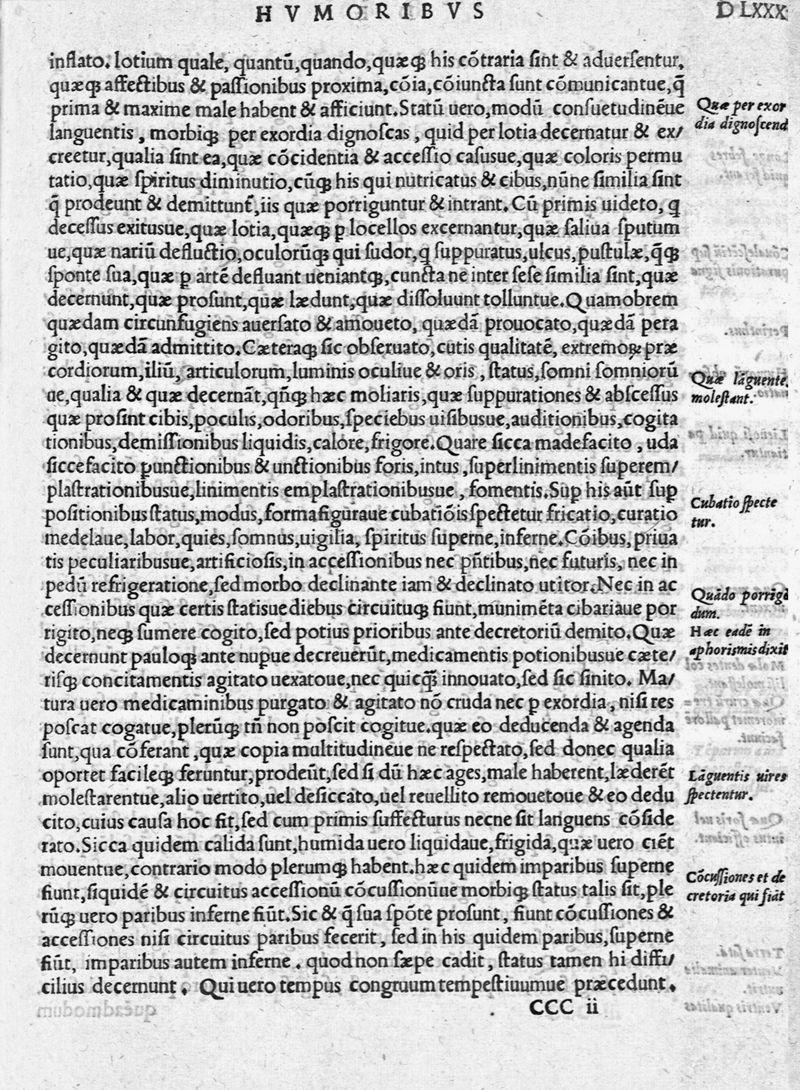 HVMORIBVS
DLXXX
inflato. lotium quale, quantū, quando, quæqꝫ his cōtraria sint & aduersentur,
quæqꝫ affectibus & passionibus proxima, cōia, cōiuncta sunt cōmunicantue, q̄
prima & maxime male habent & afficiunt. Statū uero, modū consuetudinēue
languentis, morbiqꝫ per exordia dignoscas, quid per lotia decernatur & ex/
creetur, qualia sint ea, quæ cōcidentia & accessio casusue, quæ coloris permu
tatio, quæ spiritus diminutio, cūqꝫ his qui nutricatus & cibus, nūne similia sint
q̄ prodeunt & demittunt̄, iis quæ porriguntur & intrant. Cū primis uideto, q
decessus exitusue, quæ lotia, quæqꝫ ꝑ locellos excernantur, quæ saliua sputum
ue, quæ nariū defluctio, oculorūqꝫ qui sudor, q suppuratus, ulcus, pustulæ, q̄qꝫ
sponte sua, quæ ꝑ artē defluant ueniantqꝫ, cuncta ne inter sese similia sint, quæ
decernunt, quæ prosunt, quæ lædunt, quæ dissoluunt tolluntue. Quamobrem
quædam circunfugiens auersato & amoueto, quædā prouocato, quædā pera
gito, quædā admittito. Cæteraqꝫ sic obseruato, cutis qualitatē, extremoꝝ, præ
cordiorum, iliū, articulorum, luminis oculiue & oris, status, somni somniorū
ue, qualia & quæ decernāt, qn̄qꝫ hæc moliaris, quæ suppurationes & abscessus
quæ prosint cibis, poculis, odoribus, speciebus uisibusue, auditionibus, cogita
tionibus, demissionibus liquidis, calore, frigore. Quare sicca madefacito, uda
siccefacito ꝑunctionibus & unctionibus foris, intus, superlinimentis superem/
plastrationibusue, linimentis emplastrationibusue, fomentis. Sup his aūt sup
positionibus status, modus, forma figuraue cubatiōis spectetur fricatio, curatio
medelaue, labor, quies, somnus, uigilia, spiritus superne, inferne. Cōibus, priua
tis peculiaribusue, artificiosis, in accessionibus nec pn̄tibus, nec futuris, nec in
pedū refrigeratione, sed morbo declinante iam & declinato utitor. Nec in ac
cessionibus quæ certis statisue diebus circuituqꝫ fiunt, munimēta cibariaue por
rigito, neqꝫ sumere cogito, sed potius prioribus ante decretoriū demito. Quæ
decernunt pauloqꝫ ante nupue decreuerūt, medicamentis potionibusue cæte/
risqꝫ concitamentis agitato uexatoue, nec quicq̄ innouato, sed sic sinito. Ma/
tura uero medicaminibus purgato & agitato nō cruda nec p exordia, nisi res
poscat cogatue, plerūqꝫ tn̄ non poscit cogitue. quæ eo deducenda & agenda
sunt, qua cōferant, quæ copia multitudineue ne respectato, sed donec qualia
oportet facileqꝫ feruntur, prodeūt, sed si dū hæc ages, male haberent, læderēt
molestarentue, alio uertito, uel desiccato, uel reuellito remouetoue & eo dedu
cito, cuius causa hoc fit, sed cum primis suffecturus necne sit languens cōside
rato. Sicca quidem calida sunt, humida uero liquidaue, frigida, quæ uero ciēt
mouentue, contrario modo plerumqꝫ habent. hæc quidem imparibus superne
fiunt, siquidē & circuitus accessionū cōcussionūue morbiqꝫ status talis sit, ple
rūqꝫ uero paribus inferne fiūt. Sic & q̄ sua spōte prosunt, fiunt cōcussiones &
accessiones nisi circuitus paribus fecerit, sed in his quidem paribus, superne
fiūt, imparibus autem inferne. quod non sæpe cadit, status tamen hi diffi/
cilius decernunt. Qui uero tempus congruum tempestiuumue præcedunt.
CCC ii
Quæ per exor
dia dignoscend
Quæ lāguente
molestant.
Cubatio specte
tur.
Quādo porrigē
dum.
Hæc eadē in
aphorismis dixit
Lāguentis uires
spectentur.
Cōcussiones et de
cretoria qui fiāt